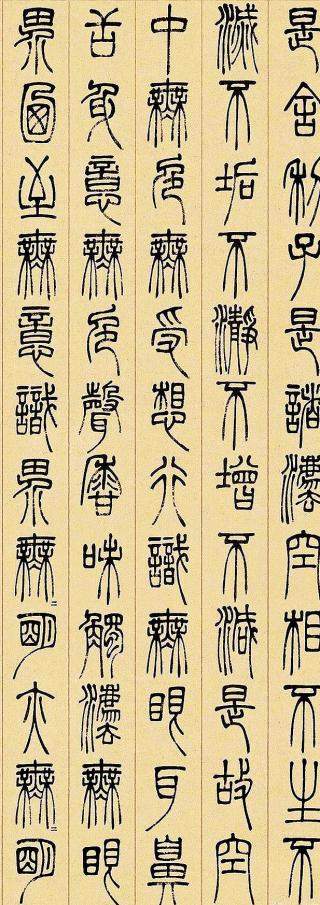 是舍利子是諸法空相不生不
滅不垢不淨不增不減是故空
中無色無受想行識無眼耳鼻
舌身意無色聲香味觸法無眼
界乃至無意識界無〻明亦無〻明